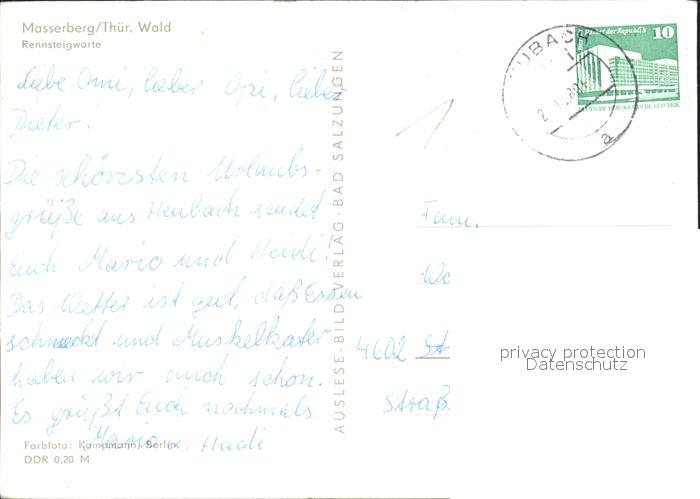 Masserberg/Thür. Wald
Rennsteigwarte
Liebe Omi, lieber Opi, lieber
Dieter!
Die schönsten Urlaubs-
grüße aus Heubach sendet
Euch Mario und Heidi!
Das Wetter ist gut, daß Essen
schmeckt und Muskelkater
haben wir auch schon.
Es grüßt Euch nochmals
Mario u. Heidi
Farbfoto: Kampmann, Berlin
DDR 0,20 M
AUSLESE-BILD-VERLAG · BAD SALZUNGEN
Palast der Republik 10
DEUTSCHE DEMOKRATISCHE REPUBLIK
UBACH
a
Fam.
Wo
4602 St
Straß
privacy protection
Datenschutz